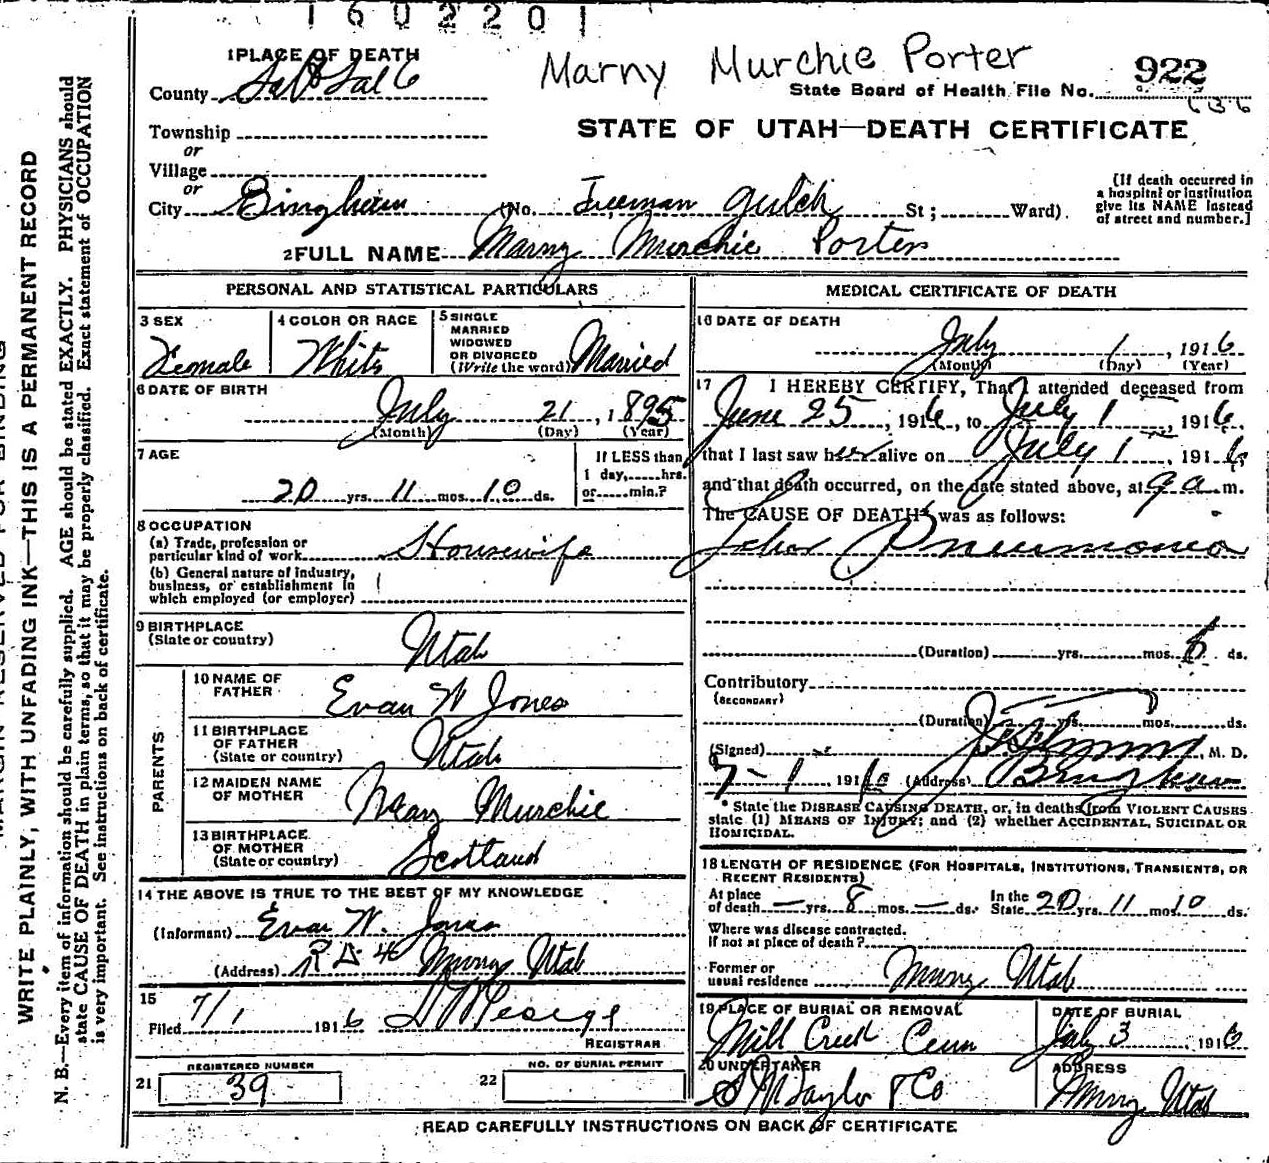 1602201
1 PLACE OF DEATH
Marny Murchie Porter
922
County Salt Lake
State Board of Health File No.
636
Township
STATE OF UTAH—DEATH CERTIFICATE
or
Village
or
City Bingham (No. Freeman Gulch St; Ward)
[If death occurred in
a hospital or institution
give its NAME instead
of street and number.]
2 FULL NAME Marny Murchie Porter
PERSONAL AND STATISTICAL PARTICULARS
3 SEX
Female
4 COLOR OR RACE
White
5 SINGLE
MARRIED
WIDOWED
OR DIVORCED
(Write the word) Married
6 DATE OF BIRTH
July 21, 1895
(Month) (Day) (Year)
7 AGE
20 yrs. 11 mos. 10 ds.
If LESS than
1 day, hrs.
or min.?
8 OCCUPATION
(a) Trade, profession or
particular kind of work Housewife
(b) General nature of industry,
business, or establishment in
which employed (or employer)
9 BIRTHPLACE
(State or country) Utah
PARENTS
10 NAME OF
FATHER Evan W Jones
11 BIRTHPLACE
OF FATHER
(State or country) Utah
12 MAIDEN NAME
OF MOTHER Mary Murchie
13 BIRTHPLACE
OF MOTHER
(State or country) Scotland
14 THE ABOVE IS TRUE TO THE BEST OF MY KNOWLEDGE
(Informant) Evan W. Jones
(Address) R D 4 Murray Utah
15
Filed 7/1 1916
REGISTRAR
REGISTERED NUMBER
21 39
NO. OF BURIAL PERMIT
22
MEDICAL CERTIFICATE OF DEATH
16 DATE OF DEATH
July 1, 1916
(Month) (Day) (Year)
17 I HEREBY CERTIFY, That I attended deceased from
June 25, 1916, to July 1, 1916,
that I last saw her alive on July 1, 1916,
and that death occurred, on the date stated above, at 9 a m.
The CAUSE OF DEATH* was as follows:
Lobar Pneumonia
(Duration) yrs. mos. 6 ds.
Contributory
(SECONDARY)
(Duration) yrs. mos. ds.
(Signed) M. D.
7-1 1916 (Address) Bingham
* State the DISEASE CAUSING DEATH, or, in deaths from VIOLENT CAUSES
state (1) MEANS OF INJURY; and (2) whether ACCIDENTAL, SUICIDAL OR
HOMICIDAL.
18 LENGTH OF RESIDENCE (FOR HOSPITALS, INSTITUTIONS, TRANSIENTS, OR
RECENT RESIDENTS)
At place
of death — yrs. 8 mos. — ds. In the
State 20 yrs. 11 mos. 10 ds.
Where was disease contracted.
If not at place of death?
Former or
usual residence Murray Utah
19 PLACE OF BURIAL OR REMOVAL
Mill Creek Cem
DATE OF BURIAL
July 3, 1916
20 UNDERTAKER
S M Taylor & Co
ADDRESS
Murray Utah
READ CAREFULLY INSTRUCTIONS ON BACK OF CERTIFICATE
MARGIN RESERVED FOR BINDING
WRITE PLAINLY, WITH UNFADING INK—THIS IS A PERMANENT RECORD
N. B.—Every item of information should be carefully supplied. AGE should be stated EXACTLY. PHYSICIANS should
state CAUSE OF DEATH in plain terms, so that it may be properly classified. Exact statement of OCCUPATION
is very important. See instructions on back of certificate.